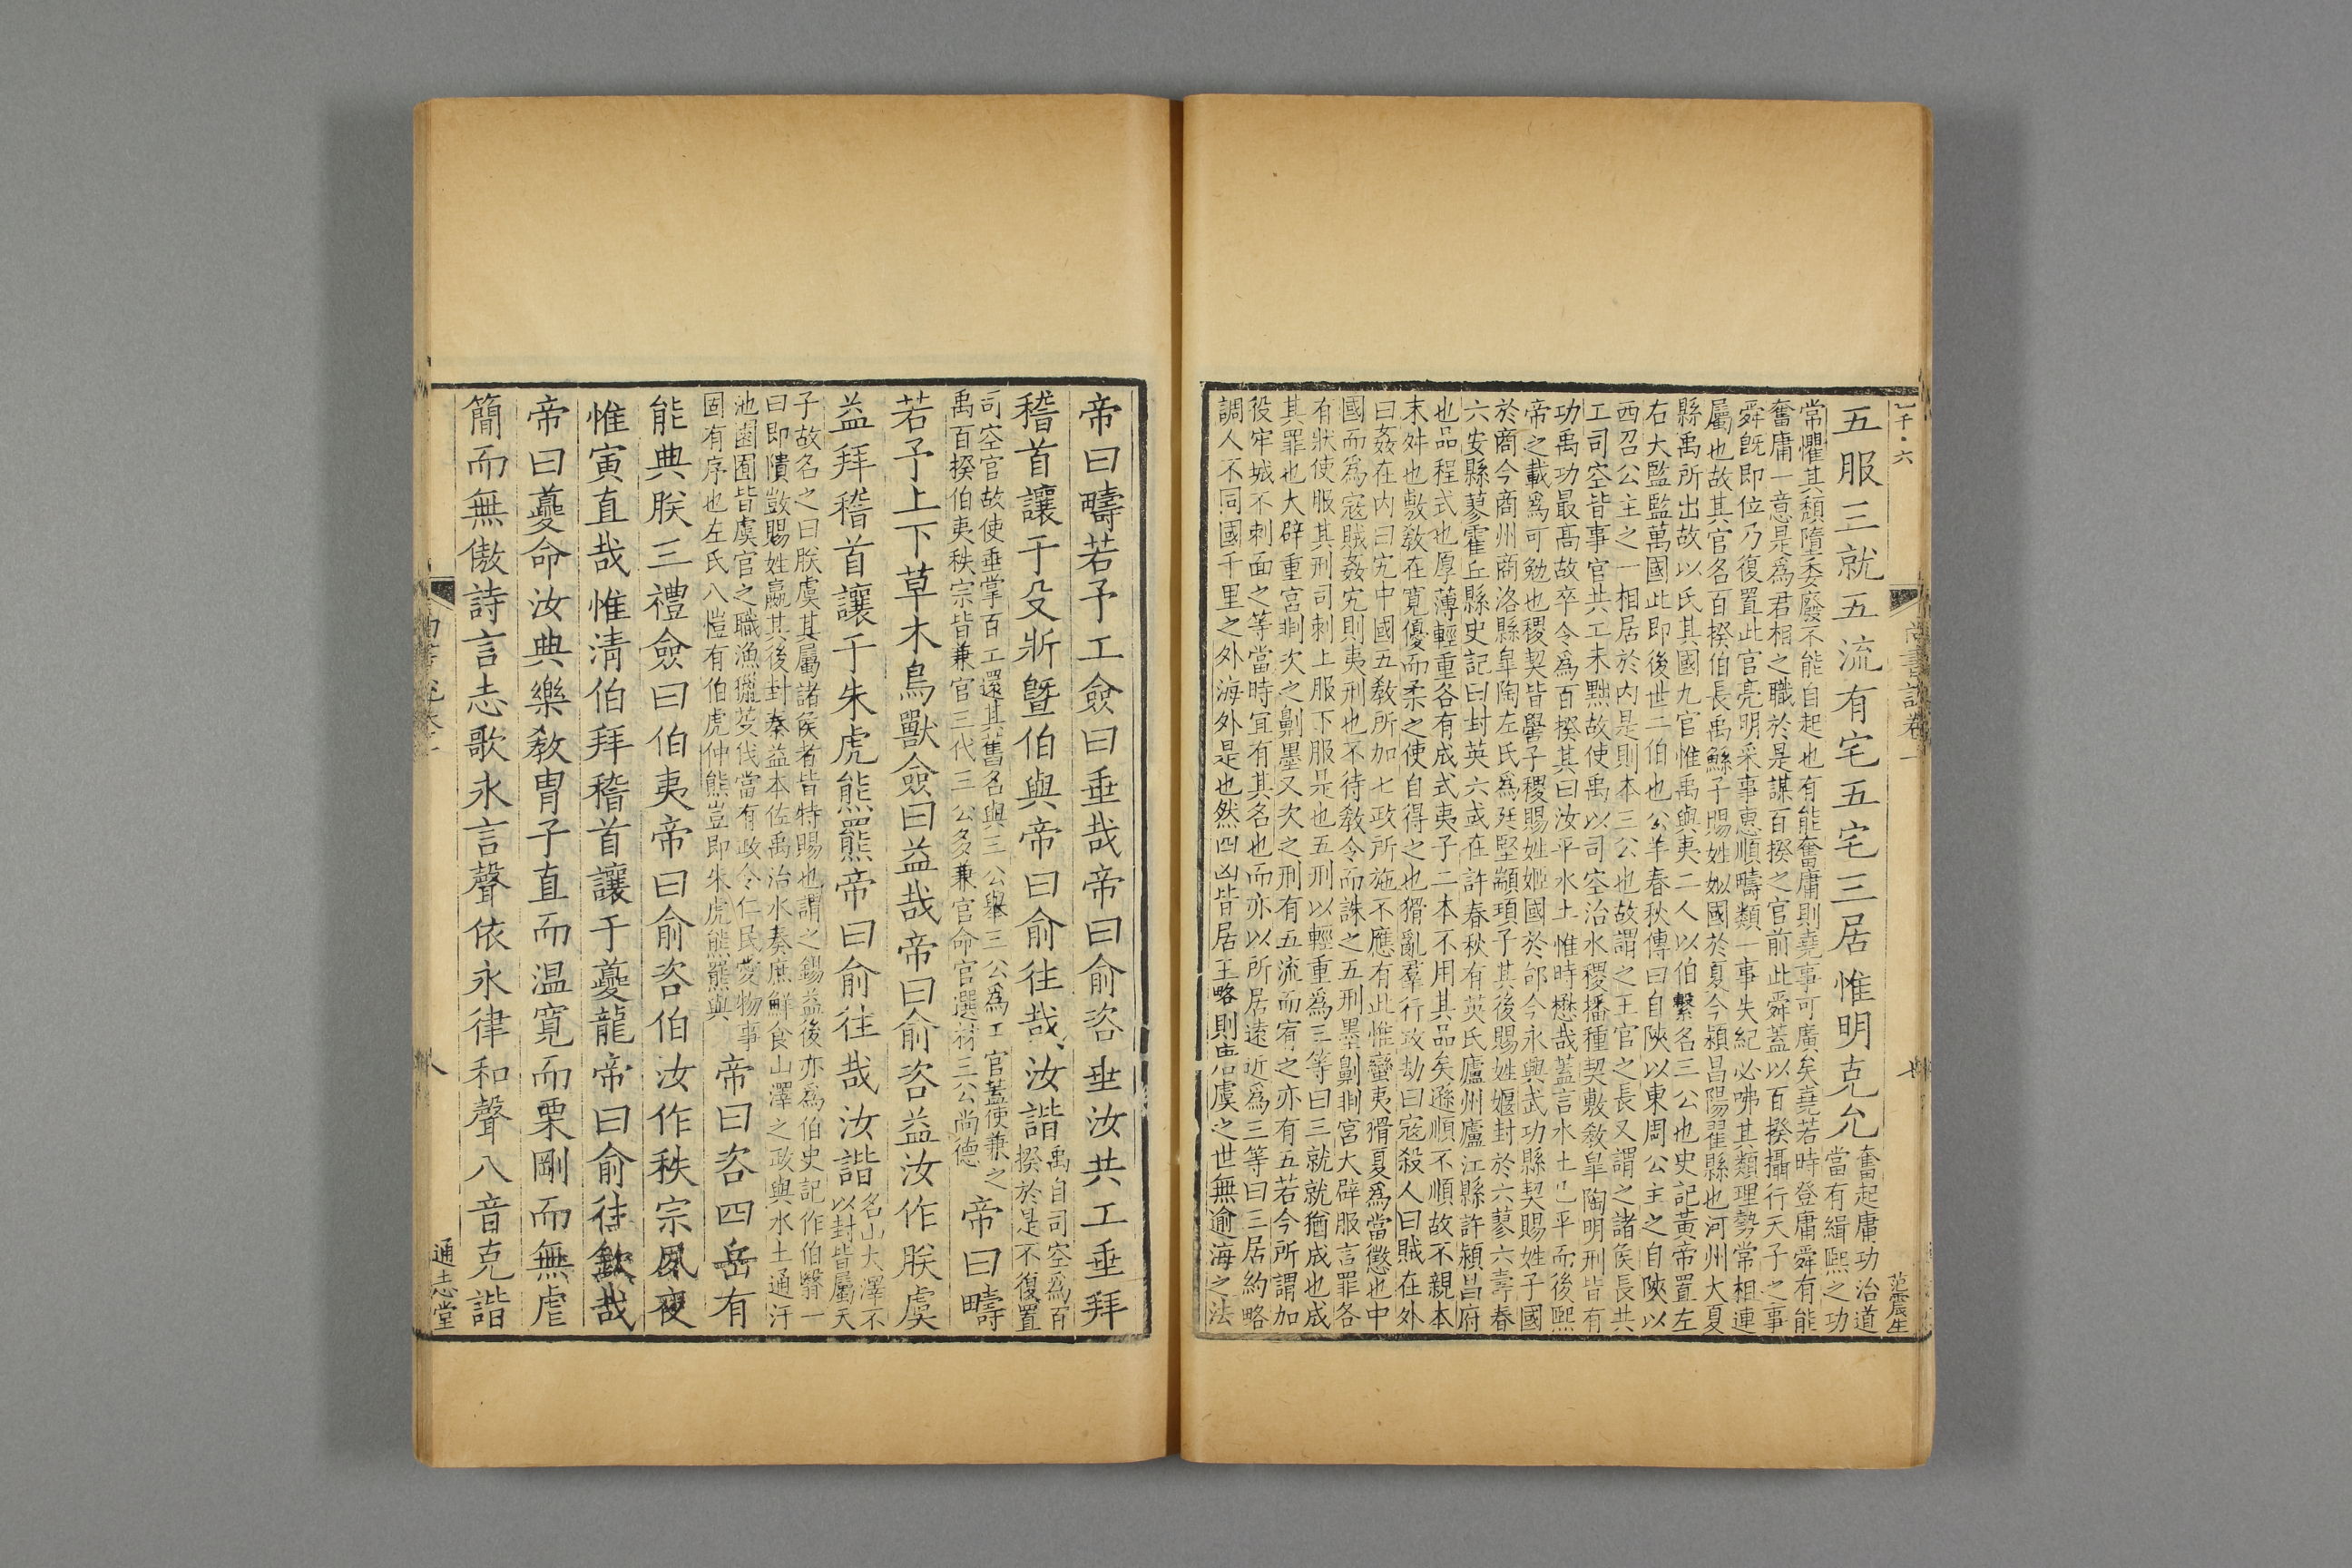 五服三就五流有宅五宅三居惟明克允
奮起庸功治道
當有緝熙之功
常懼其頹隋委廢不能自起也有能奮庸則堯事可廣矣堯若時登庸舜有能
奮庸一意是為君相之職於是謀百揆之官前此舜蓋以百揆攝行天子之事
舜旣即位乃復置此官亮明采事惠順疇類一事失紀必咈其類理勢常相連
屬也故其官名百揆伯長禹鯀子賜姓姒國於夏今潁昌陽翟縣也河州大夏
縣禹所出故以氏其國九官惟禹與夷二人以伯繫名三公也史記黃帝置左
右大監監萬國此即後世二伯也公羊春秋傳曰自陝以東周公主之自陝以
西召公主之一相居於內是則本三公也故謂之王官之長又謂之諸侯長共
工司空皆事官共工未黜故使禹以司空治水稷播種契敷敎皐陶明刑皆有
功禹功最高故卒令為百揆其曰汝平水土惟時懋哉蓋言水土已平而後熙
帝之載為可勉也稷契皆嚳子稷賜姓姬國於邰今永興武功縣契賜姓子國
於商今商州商洛縣皐陶左氏為廷堅顓頊子其後賜姓嬴封於六蓼六壽春
六安縣蓼霍丘縣史記曰封英六或在許春秋有英氏廬州廬江縣許潁昌府
也品程式也厚薄輕重各有成式夷子二本不用其品矣遜順不順故不親本
末舛也敷敎在寬優而柔之使自得之也猾亂羣行攻劫曰寇殺人曰賊在外
曰姦在内曰宄中國五敎所加七政所施不應有此惟蠻夷猾夏為當懲也中
國而為寇賊姦宄則夷刑也不待敎令而誅之五刑墨劓剕宮大辟服言罪各
有狀使服其刑司刺上服下服是也五刑以輕重為三等曰三就就猶成也成
其罪也大辟重宮剕次之劓墨又次之刑有五流而宥之亦有五若今所謂加
役牢城不刺面之等當時宜有其名也而亦以所居遠近為三等曰三居約略
調人不同國千里之外海外是也然四凶皆居王略則唐虞之世無逾海之法
帝曰疇若予工僉曰垂哉帝曰俞咨垂汝共工垂拜
稽首讓于殳斨暨伯與帝曰俞往哉汝諧
禹自司空為百
揆於是不復置
司空官故使垂掌百工還其舊名與三公舉三公為工官蓋使兼之
禹百揆伯夷秩宗皆兼官三代三公多兼官命官選材三公尚德
帝曰疇
若予上下草木鳥獸僉曰益哉帝曰俞咨益汝作朕虞
益拜稽首讓于朱虎熊羆帝曰俞往哉汝諧
名山大澤不
以封皆屬天
子故名之曰朕虞其屬諸侯者皆特賜也謂之錫益後亦為伯史記作伯翳一
曰即隤敱賜姓嬴其後封秦益本佐禹治水奏庶鮮食山澤之政與水土通汙
池園囿皆虞官之職漁獵芟伐當有政令仁民愛物事
固有序也左氏八愷有伯虎仲熊豈即朱虎熊羆與
帝曰咨四岳有
能典朕三禮僉曰伯夷帝曰俞咨伯汝作秩宗夙夜
惟寅直哉惟清伯拜稽首讓于夔龍帝曰俞往欽哉
帝曰夔命汝典樂敎胄子直而温寬而栗剛而無虐
簡而無傲詩言志歌永言聲依永律和聲八音克諧
尚書說卷一
范震生
八
通志堂